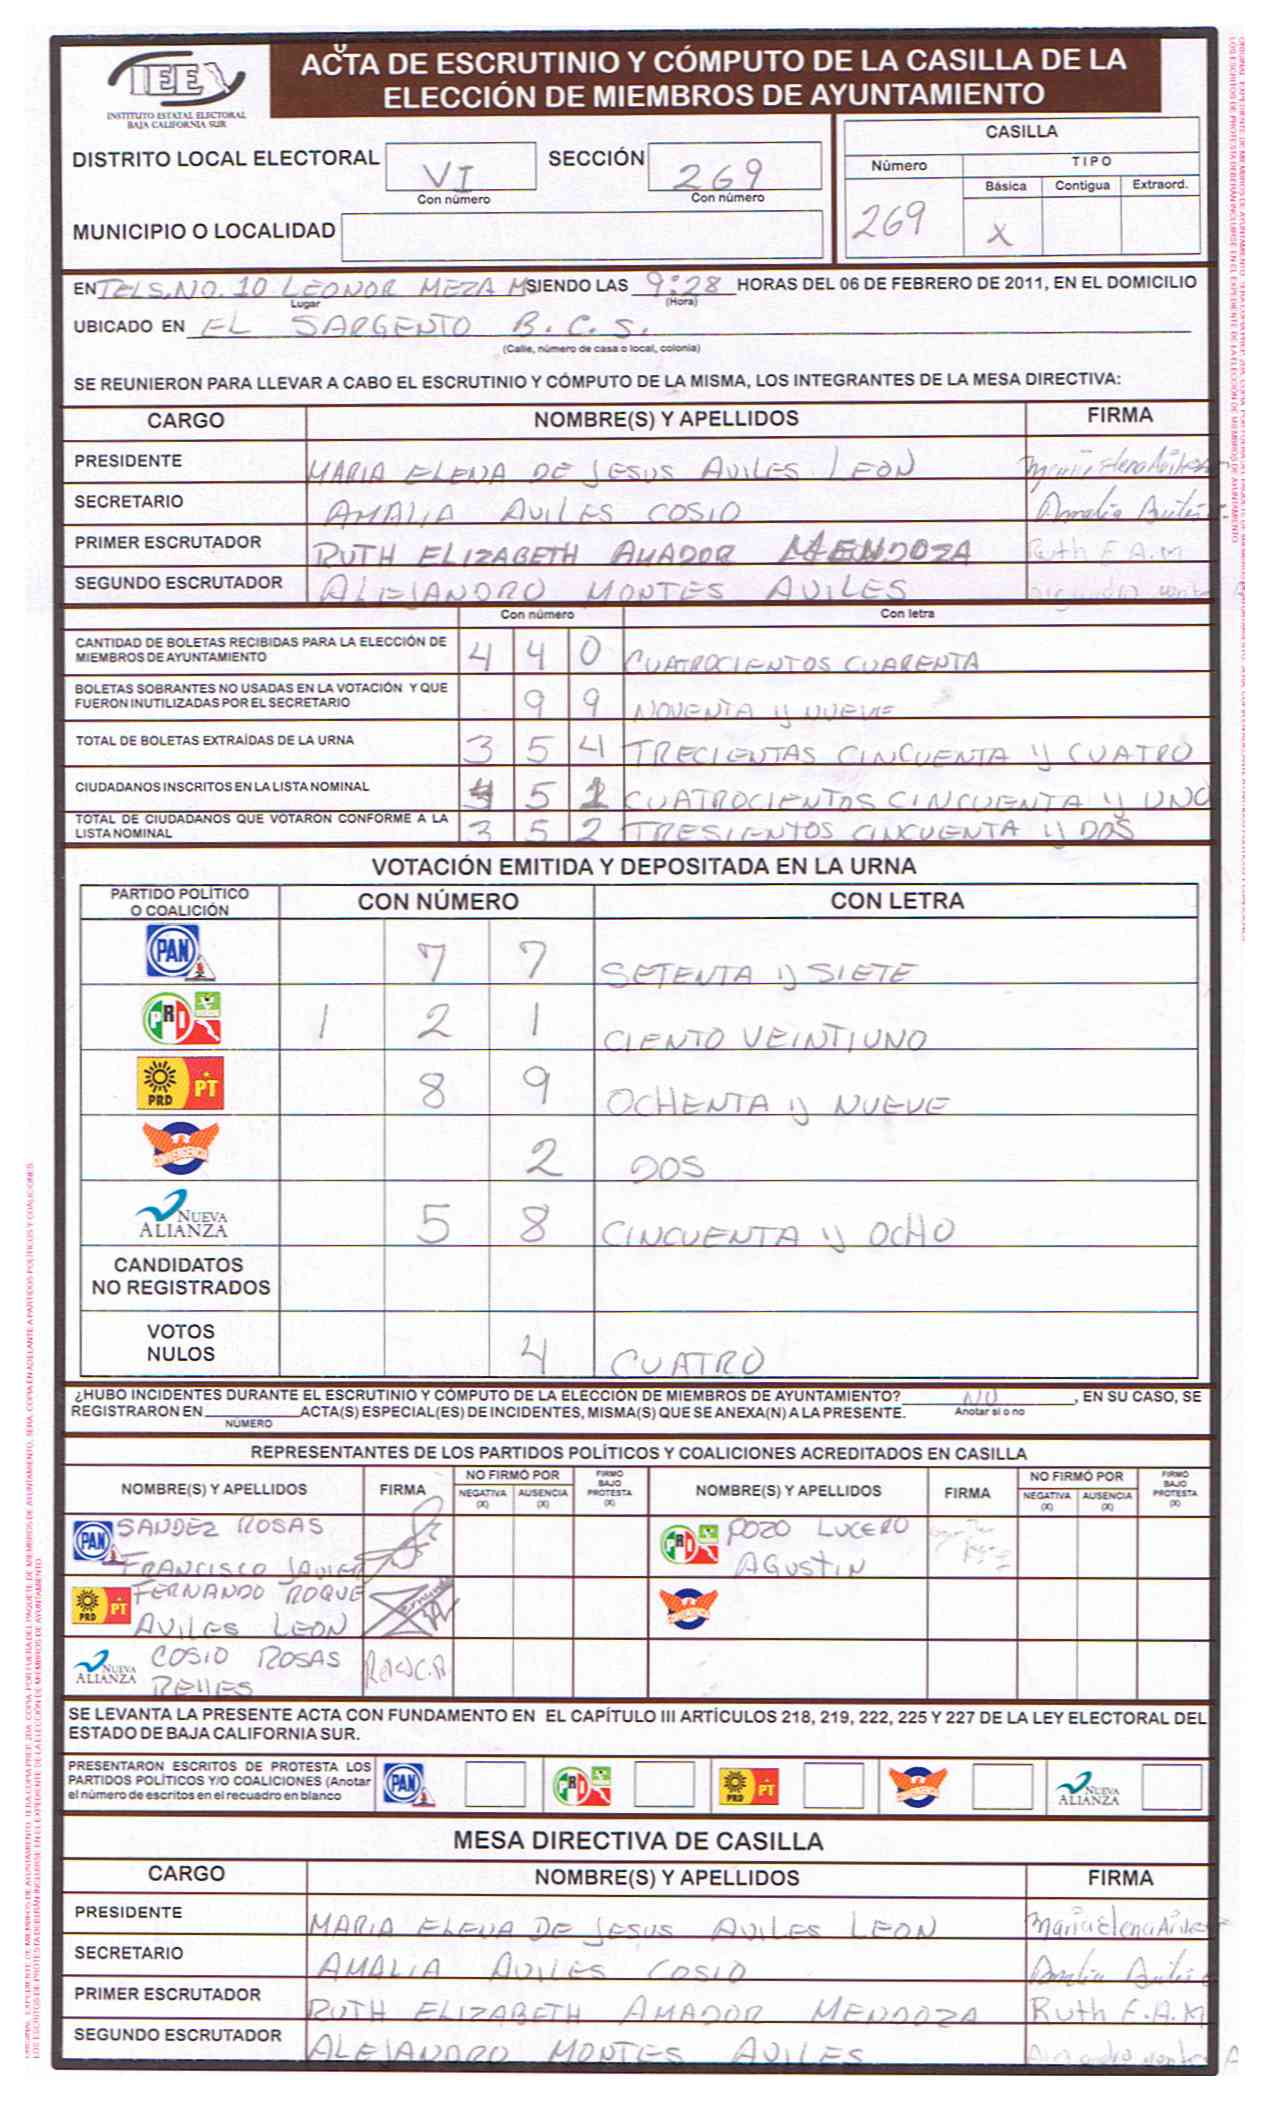 IEE
INSTITUTO ESTATAL ELECTORAL
BAJA CALIFORNIA SUR
ACTA DE ESCRUTINIO Y CÓMPUTO DE LA CASILLA DE LA
ELECCIÓN DE MIEMBROS DE AYUNTAMIENTO
DISTRITO LOCAL ELECTORAL VI SECCIÓN 269
Con número Con número
MUNICIPIO O LOCALIDAD
CASILLA
Número TIPO
Básica Contigua Extraord.
269 X
EN TELS.NO. 10 LEONOR MEZA M SIENDO LAS 9:28 HORAS DEL 06 DE FEBRERO DE 2011, EN EL DOMICILIO
Lugar (Hora)
UBICADO EN EL SARGENTO B.C.S.
(Calle, número de casa o local, colonia)
SE REUNIERON PARA LLEVAR A CABO EL ESCRUTINIO Y CÓMPUTO DE LA MISMA, LOS INTEGRANTES DE LA MESA DIRECTIVA:
CARGO NOMBRE(S) Y APELLIDOS FIRMA
PRESIDENTE MARIA ELENA DE JESUS AVILES LEON
SECRETARIO AMALIA AVILES COSIO
PRIMER ESCRUTADOR RUTH ELIZABETH AMADOR MENDOZA Ruth E.A.M
SEGUNDO ESCRUTADOR ALEJANDRO MONTES AVILES
Con número Con letra
CANTIDAD DE BOLETAS RECIBIDAS PARA LA ELECCIÓN DE
MIEMBROS DE AYUNTAMIENTO 4 4 0 CUATROCIENTOS CUARENTA
BOLETAS SOBRANTES NO USADAS EN LA VOTACIÓN Y QUE
FUERON INUTILIZADAS POR EL SECRETARIO 9 9 NOVENTA Y NUEVE
TOTAL DE BOLETAS EXTRAÍDAS DE LA URNA 3 5 4 TRECIENTAS CINCUENTA Y CUATRO
CIUDADANOS INSCRITOS EN LA LISTA NOMINAL 4 5 1 CUATROCIENTOS CINCUENTA Y UNO
TOTAL DE CIUDADANOS QUE VOTARON CONFORME A LA
LISTA NOMINAL 3 5 2 TRESIENTOS CINCUENTA Y DOS
VOTACIÓN EMITIDA Y DEPOSITADA EN LA URNA
PARTIDO POLÍTICO
O COALICIÓN CON NÚMERO CON LETRA
PAN 7 7 SETENTA Y SIETE
PRI 1 2 1 CIENTO VEINTIUNO
PRD PT 8 9 OCHENTA Y NUEVE
CONVERGENCIA 2 DOS
NUEVA ALIANZA 5 8 CINCUENTA Y OCHO
CANDIDATOS
NO REGISTRADOS
VOTOS
NULOS 4 CUATRO
¿HUBO INCIDENTES DURANTE EL ESCRUTINIO Y CÓMPUTO DE LA ELECCIÓN DE MIEMBROS DE AYUNTAMIENTO? NO, EN SU CASO, SE
REGISTRARON EN ACTA(S) ESPECIAL(ES) DE INCIDENTES, MISMA(S) QUE SE ANEXA(N) A LA PRESENTE. Anotar si o no
NÚMERO
REPRESENTANTES DE LOS PARTIDOS POLÍTICOS Y COALICIONES ACREDITADOS EN CASILLA
NOMBRE(S) Y APELLIDOS FIRMA NO FIRMÓ POR NEGATIVA (X) AUSENCIA (X) FIRMO BAJO PROTESTA (X) NOMBRE(S) Y APELLIDOS FIRMA NO FIRMÓ POR NEGATIVA (X) AUSENCIA (X) FIRMO BAJO PROTESTA (X)
PAN SANDEZ ROSAS PRI POZO LUCERO
FRANCISCO JAVIER AGUSTIN
PRD PT FERNANDO ROQUE CONVERGENCIA
AVILES LEON
NUEVA ALIANZA COSIO ROSAS
REYES
SE LEVANTA LA PRESENTE ACTA CON FUNDAMENTO EN EL CAPÍTULO III ARTÍCULOS 218, 219, 222, 225 Y 227 DE LA LEY ELECTORAL DEL
ESTADO DE BAJA CALIFORNIA SUR.
PRESENTARON ESCRITOS DE PROTESTA LOS
PARTIDOS POLÍTICOS Y/O COALICIONES (Anotar
el número de escritos en el recuadro en blanco
PAN PRI PRD PT CONVERGENCIA NUEVA ALIANZA
MESA DIRECTIVA DE CASILLA
CARGO NOMBRE(S) Y APELLIDOS FIRMA
PRESIDENTE MARIA ELENA DE JESUS AVILES LEON
SECRETARIO AMALIA AVILES COSIO
PRIMER ESCRUTADOR RUTH ELIZABETH AMADOR MENDOZA Ruth E.A.M
SEGUNDO ESCRUTADOR ALEJANDRO MONTES AVILES